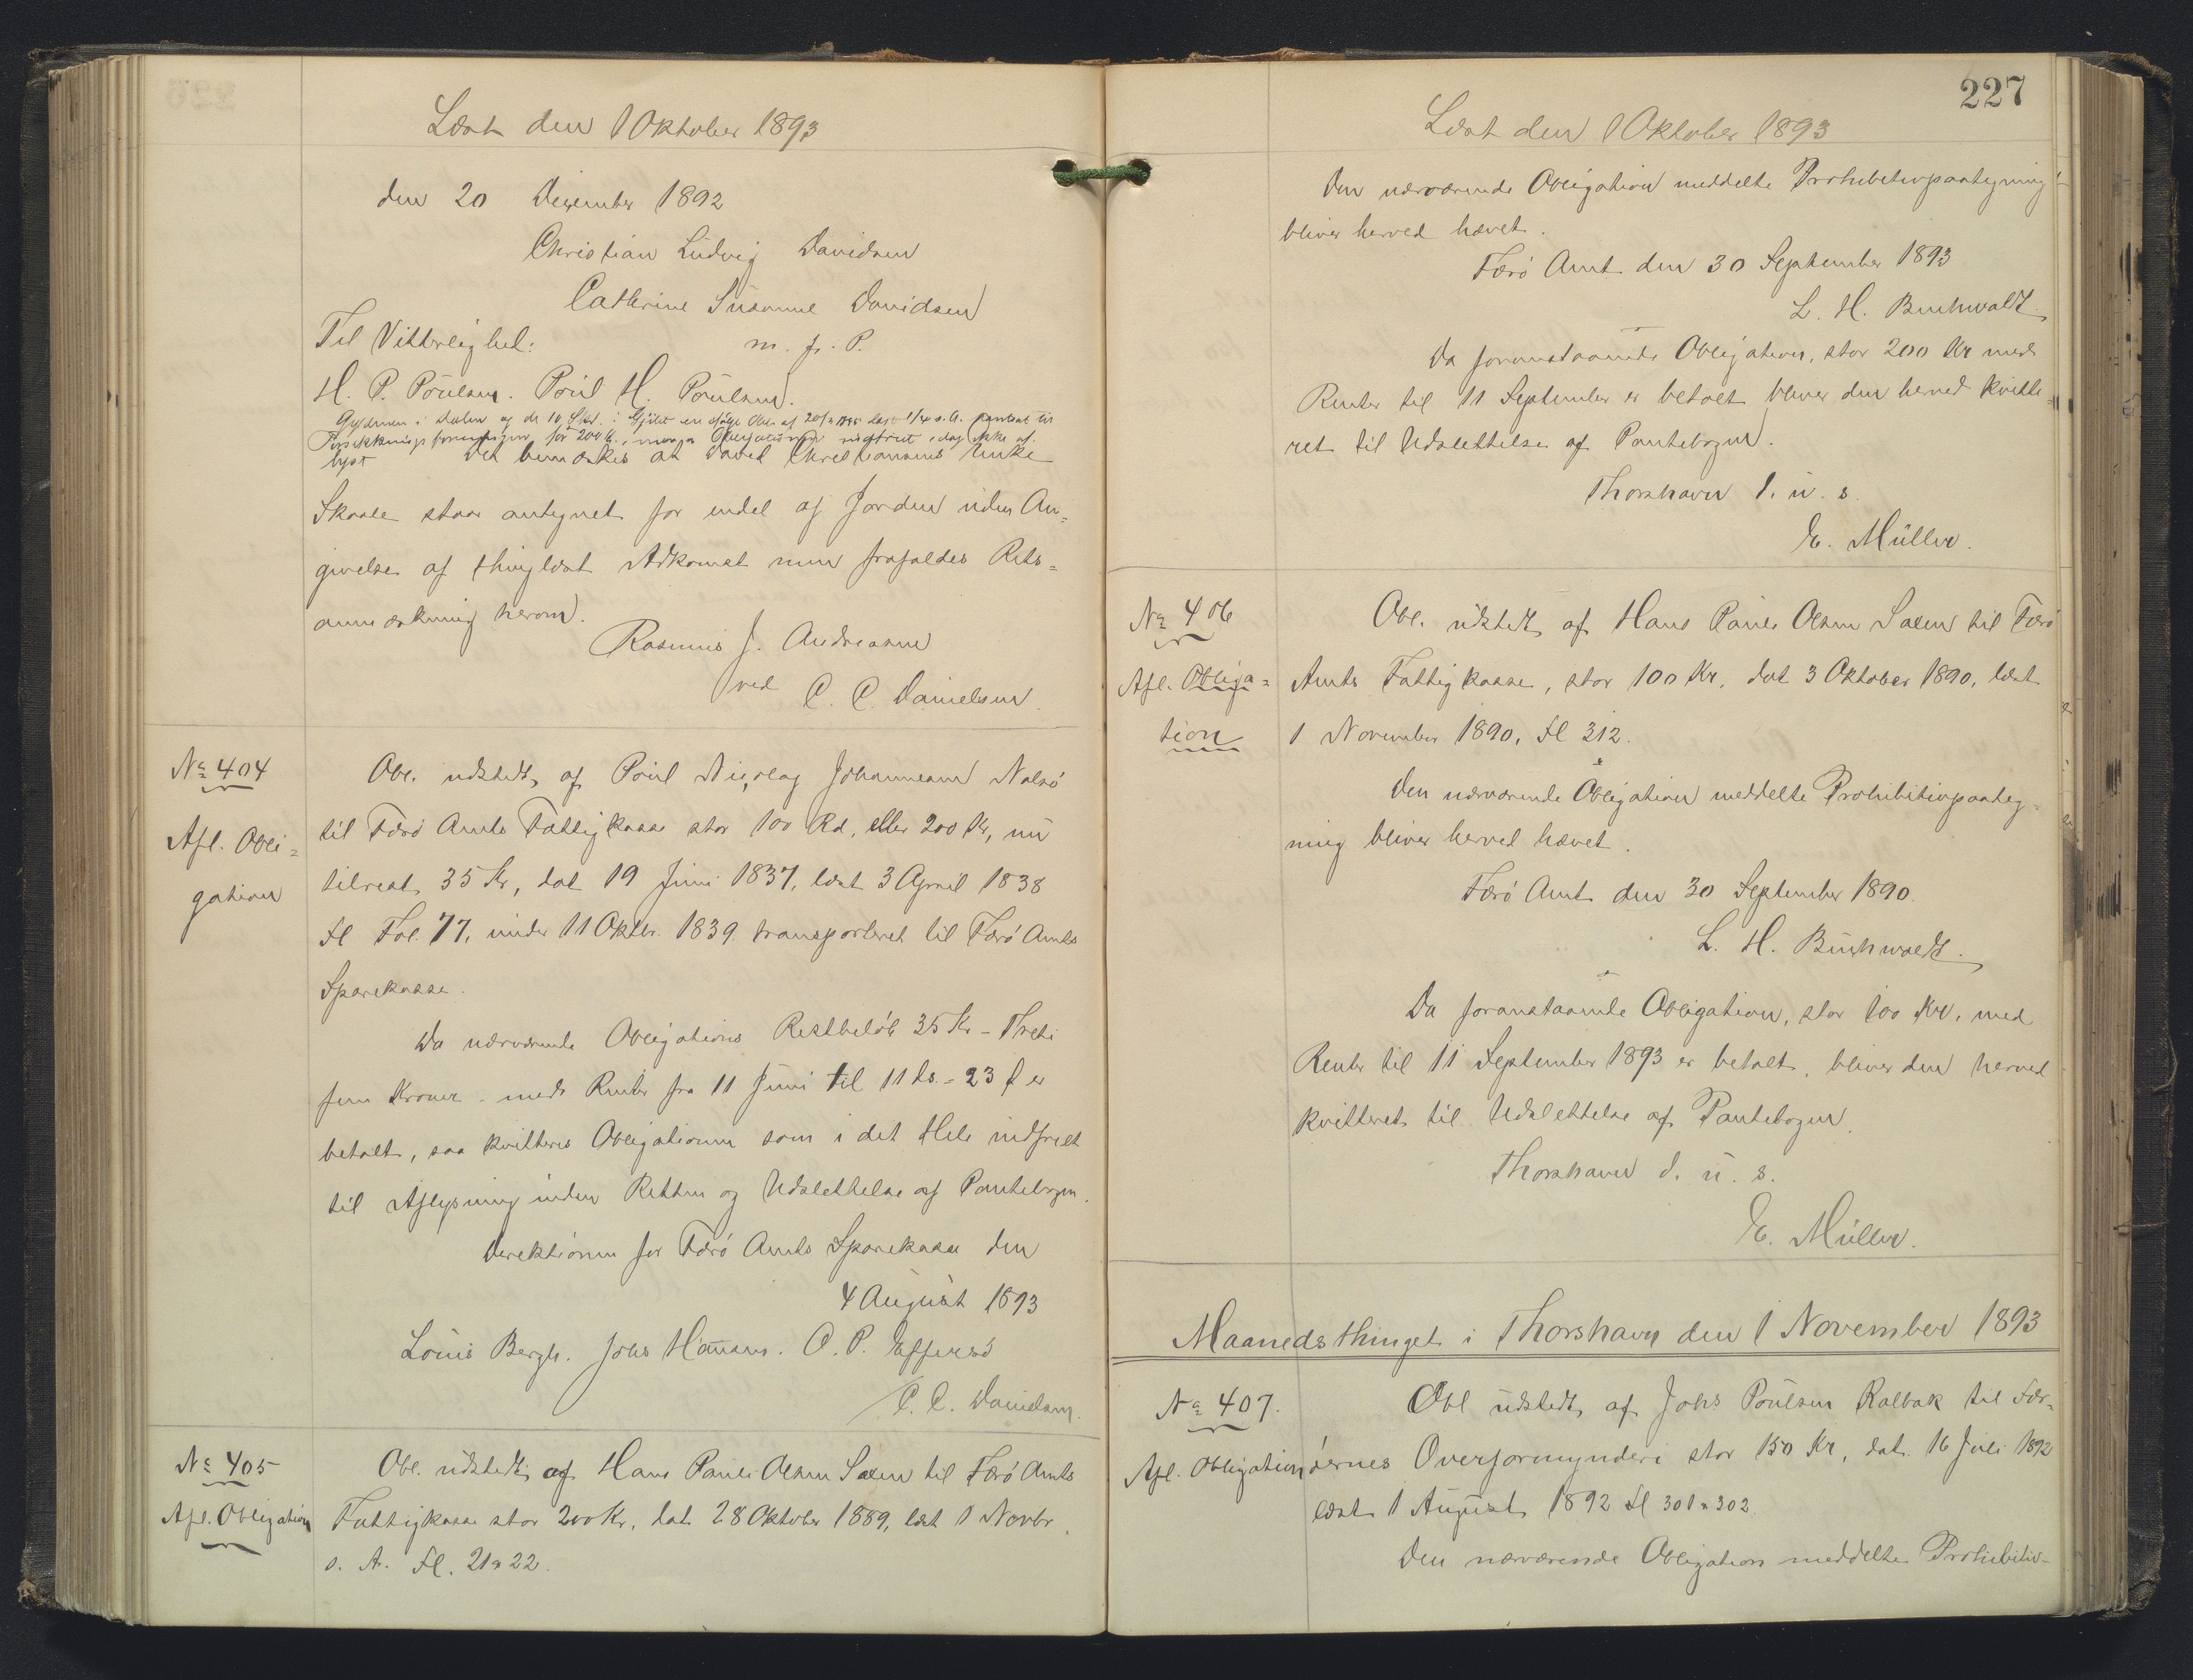 Læst den 1 Oktober 1893
den 20 Dezember 1892
Christian Ludvig Davidsen
Cathrine Susanne Davidsen
Til Vitterlighed:
m. f. P.
H. P. Poulsen. Poul H. Poulsen.
for 200 Kr.
lyst
Det bemærkes at David Christiansens Enke
Skaale staar antegnet for endel af Jorden uden An-
givelse af thinglæst Adkomst men frafaldes Rets-
anmærkning herom.
Rasmus J. Andreasen
ved C. C. Danielsen.
No 404
Afl. Obli-
gation
Obl. udstedt af Poul Nicolay Johannesen Nolsö
til Færö Amts Fattigkasse stor 100 Rd. eller 200 Kr, nu
tilrest 35 Kr, dat 19 Juni 1837, læst 3 April 1838
Fol. 77, under 11 Oktbr. 1839 transporteret til Færö Amts
Sparekasse.
Da nærværende Obligations Restbelöb 35 Kr - Treti
fem Kroner - med Renter fra 11 Juni til 11 ds. = 23 ø er
betalt, saa kvitteres Obligationen som i det Hele indfriet
til Aflysning inden Retten og Udslettelse af Pantebogen.
Direktionen for Færö Amts Sparekasse den
4 August 1893
Louis Bergh. Johs Hansen. O. P. Effersö
/ C. C. Danielsen.
No 405
Afl. Obligation
Obl. udstedt af Hans Pauli Olsen Saxen til Færö Amts
Fattigkasse stor 200 Kr, dat 28 Oktober 1889, læst 1 Novbr.
s. A. Fl. 21 & 22.
227
Læst den 1 Oktober 1893
Den nærværende Obligation meddelte Prohibitivpaategning
bliver herved hævet.
Færö Amt den 30 September 1893
L. H. Buchwaldt.
Da foranstaaende Obligation, stor 200 Kr med
Renter til 11 September er betalt bliver den herved kvitte-
ret til Udslettelse af Pantebogen.
Thorshavn d. u. s.
E. Müller.
No 406
Afl. Obliga-
tion
Obl. udstedt af Hans Pauli Olsen Saxen til Færö
Amts Fattigkasse, stor 100 Kr, dat 3 Oktober 1890, læst
1 November 1890, Fl 312.
Den nærværende Obligation meddelte Prohibitivpaateg-
ning bliver herved hævet.
Færö Amt den 30 September 1890.
L. H. Buchwaldt.
Da foranstaaende Obligation, stor 100 Kr, med
Renter til 11 September 1893 er betalt, bliver den herved
kvitteret til Udslettelse af Pantebogen.
Thorshavn d. u. s.
E. Müller.
Maanedsthinget i Thorshavn den 1 November 1893
No 407.
Afl. Obligation
Obl udstedt af Johs Poulsen Kalbak til Fær-
öernes Overformynderi stor 150 Kr, dat. 16 Juli 1892
læst 1 August 1892 Fl 301 & 302.
Den nærværende Obligation meddelte Prohibitiv-